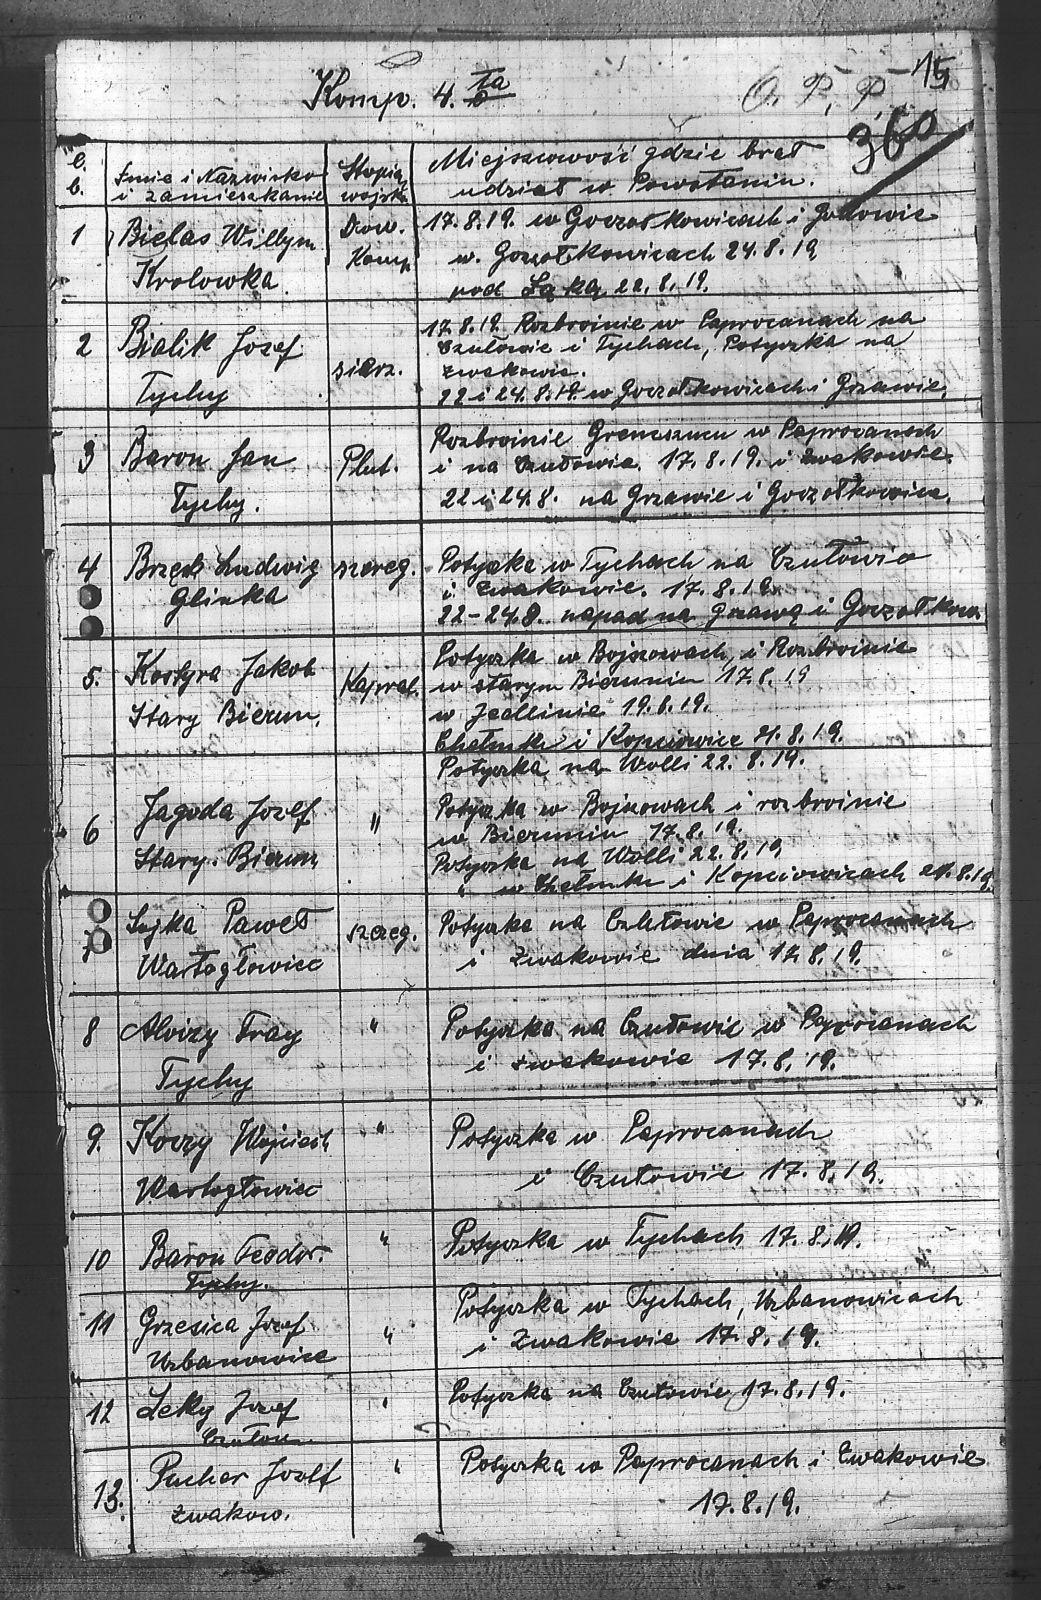 Komp. 4.ta
O. P. P. 15
360
L. b.
Imie i Nazwisko i zamieszkanie
Stopią wojsk.
Miejszowość gdzie breł udzieł w Powstaniu.
1 Bielas Wilhym Dow. 17.8.19. w Goczołkowicach i
Krolowka Komp w. Goczołkowicach 24.8.19
pod Łąką 22.8.19.
2 Bialik Josef sierz. 17.8.19. Rozbroinie w Paprocanach na
Czułowie i Tychach, Potyczka na
Tychy Zwakowie.
22 i 24.8.19. w Goczołkowicach i Grzawie.
3 Baron Jan Plut. Rozbroinie Grencszucu w Paprocanach
i na Czułowie 17.8.19. i Zwakowie.
Tychy. 22 i 24.8. na Grzawie i Goczołkowice.
4 Brzęk Ludwig szereg. Potyczka w Tychach na Czułowie
Glinka i Zwakowie. 17.8.19.
22-24.8. napad na Grzawę i Goczołkow.
5. Kostyra Jakob Kapral. Potyczka w Bojszowach i Rozbroinie
w starym Bieruniu 17.8.19
Stary Bierun. w Jedlinie 19.8.19.
Chełmku i Kopciowice 21.8.19.
Potyczka na Wolli 22.8.19.
6 Jagoda Jozef " Potyczka w Bojszowach i rozbroinie
w Bieruniu 17.8.19.
Stary. Bierun Potyczka na Wolli 22.8.19
" w Chełmku i Kopciowicach 21.8.19.
7 Sojka Paweł szereg. Potyczka na Czułowie w Paprocanach
Wartogłowiec i Zwakowie dnia 17.8.19.
8 Aloizy Fray " Potyczka na Czułowie w Paprocanach
Tychy i zwakowie 17.8.19.
9. Koczy Wojciech " Potyczka w Paprocanach
Wartogłowiec i Czułowie 17.8.19.
10 Baron Teodor. " Potyczka w Tychach 17.8.19.
Tychy.
11 Grzesica Jozef " Potyczka w Tychach, Urbanowicach
Urbanowice i Zwakowie 17.8.19.
12 Leky Jozef " Potyczka na Czułowie 17.8.19.
Czułow
13. Pucher Jozef " Potyczka w Paprocanach i Zwakowie
Zwakow. 17.8.19.